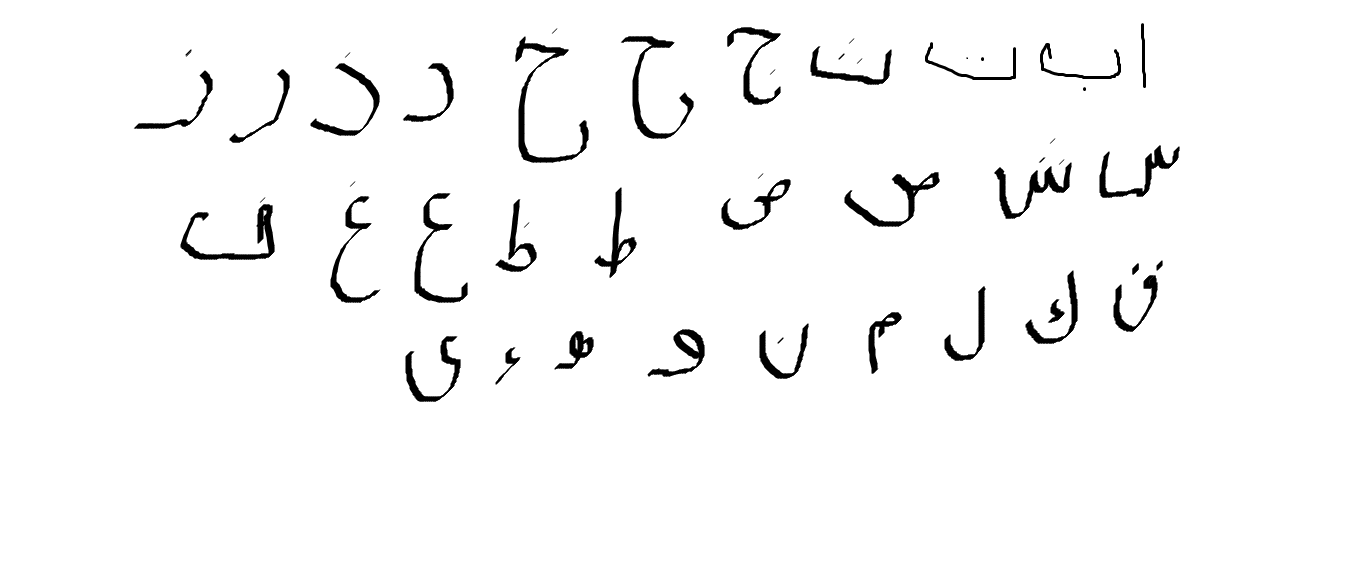 ا ب ت ث ج ح خ د ذ ر ز
س ش ص ض ط ظ ع غ ف
ق ك ل م ن و ه ء ى